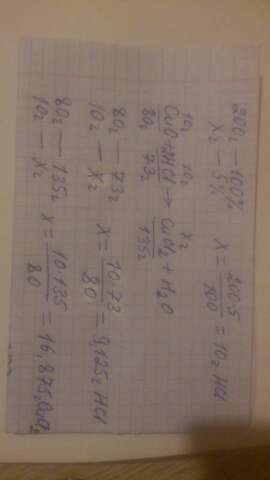 200г — 100%
xг — 5% x = 200·5/100 = 10г HCl
10г 10г xг
CuO+2HCl → CuCl₂ + H₂O
80г 73г 135г
80г — 73г
10г — xг x = 10·73/80 = 9,125г HCl
80г — 135г
10г — xг x = 10·135/80 = 16,875г CuCl₂